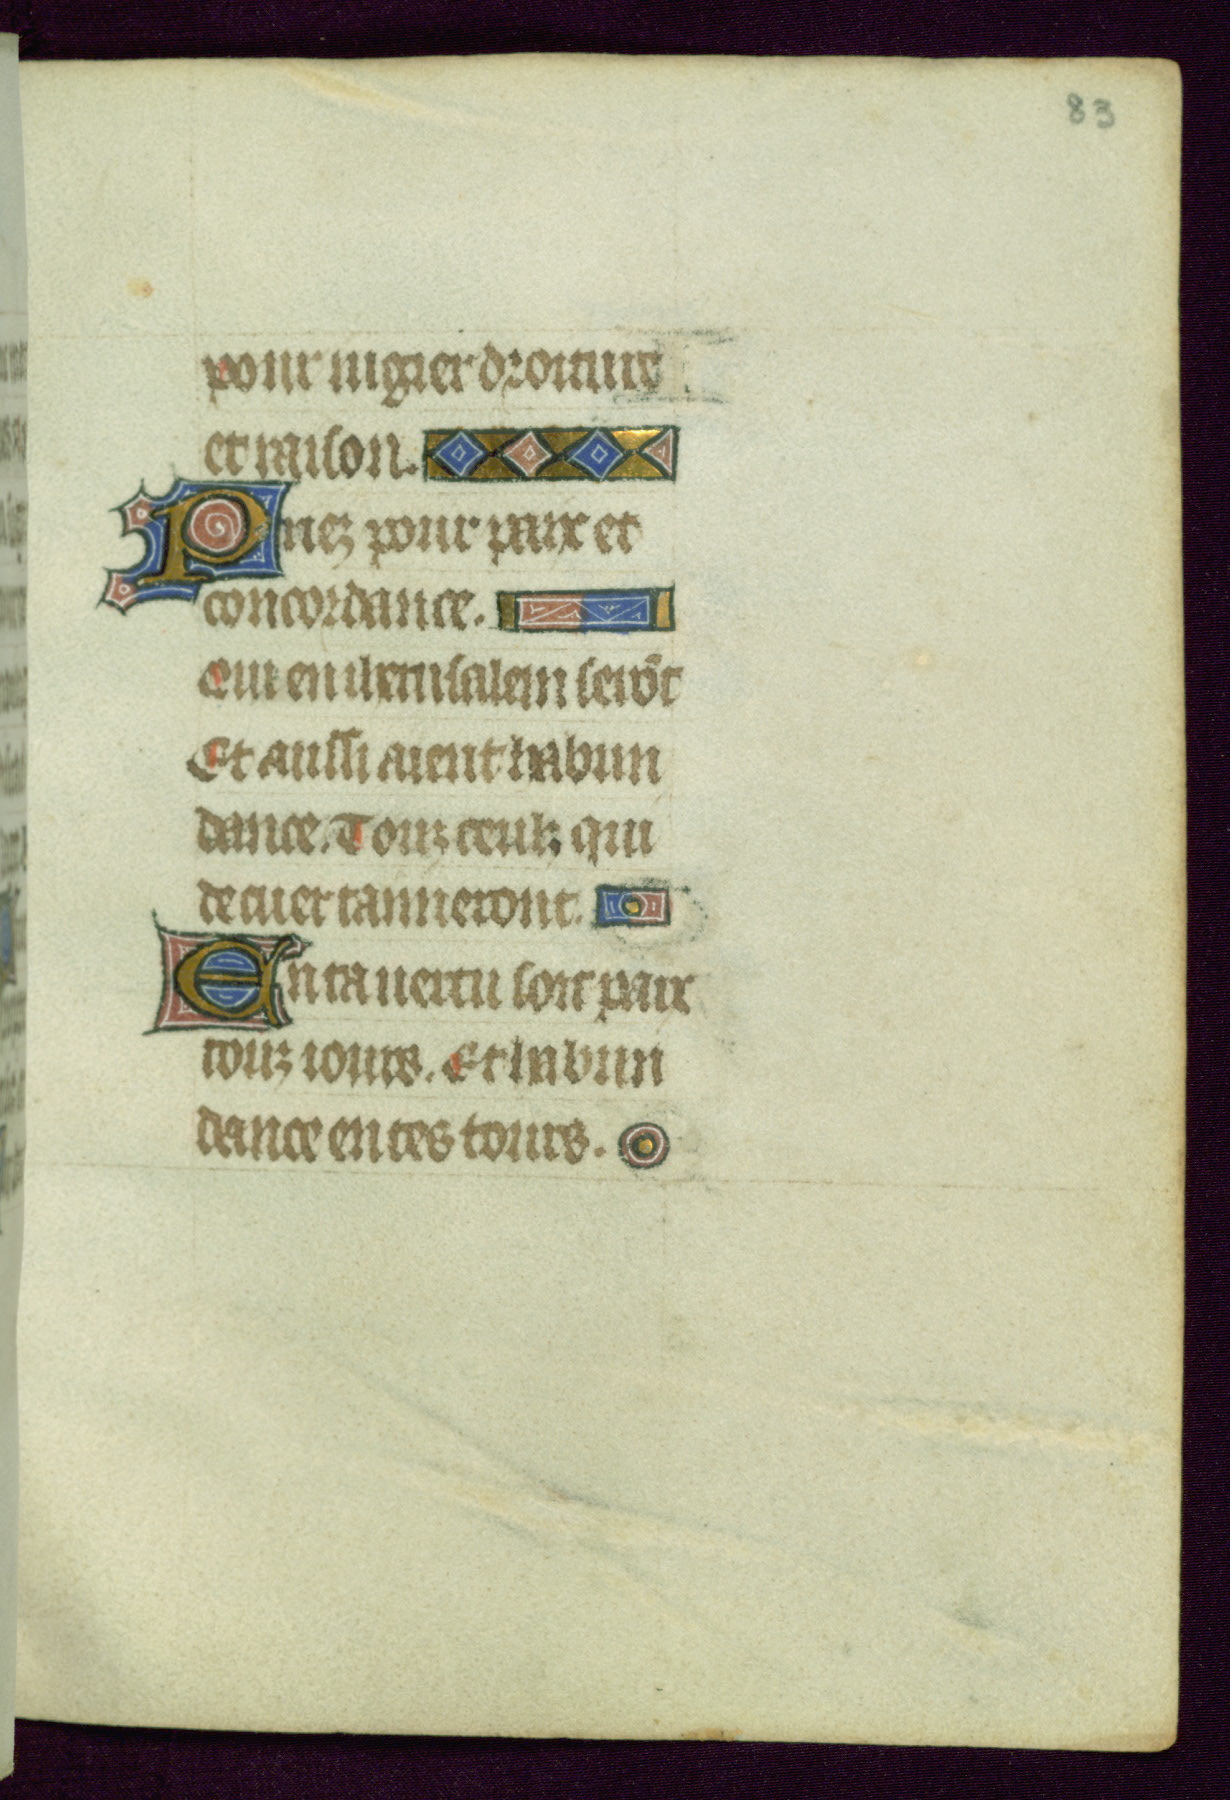 83
pour iugier droiture
et raison.
Priez pour paix et
concordance.
Qui en iherusalem serōt
Et aussi aient habun
dance. Touz ceulz qui
de cuer tanmeront.
En ta uertu soit paix
touz iours. Et habun
dance en tes tours.